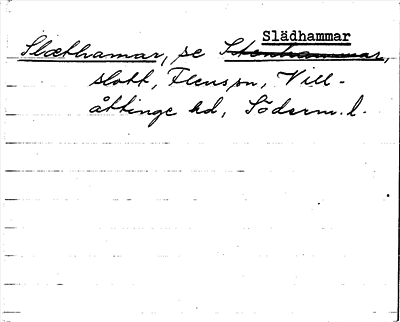 Slädhammar
Slæthamar, se Stenhammar,
slott, Flens sn, Vill-
åttinge hd, Söderm. l.